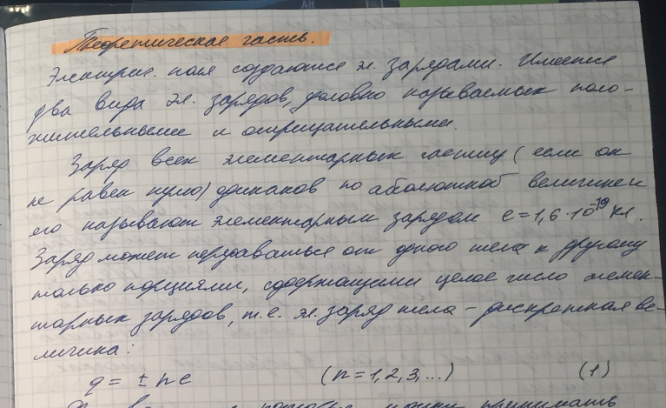 Теоретическая часть.
Электрич. поля создаются эл. зарядами. Имеется
два вида эл. зарядов, условно называемых поло-
жительными и отрицательными.
Заряд всех элементарных частиц (если он
не равен нулю) одинаков по абсолютной величине и
его называют элементарным зарядом e = 1,6 · 10⁻¹⁹ Кл.
Заряд может передаваться от одного тела к другому
только порциями, содержащими целое число элемен-
тарных зарядов, т.е. эл. заряд тела – дискретная ве-
личина:
q = ± ne (n = 1, 2, 3, ...) (1)
принимать